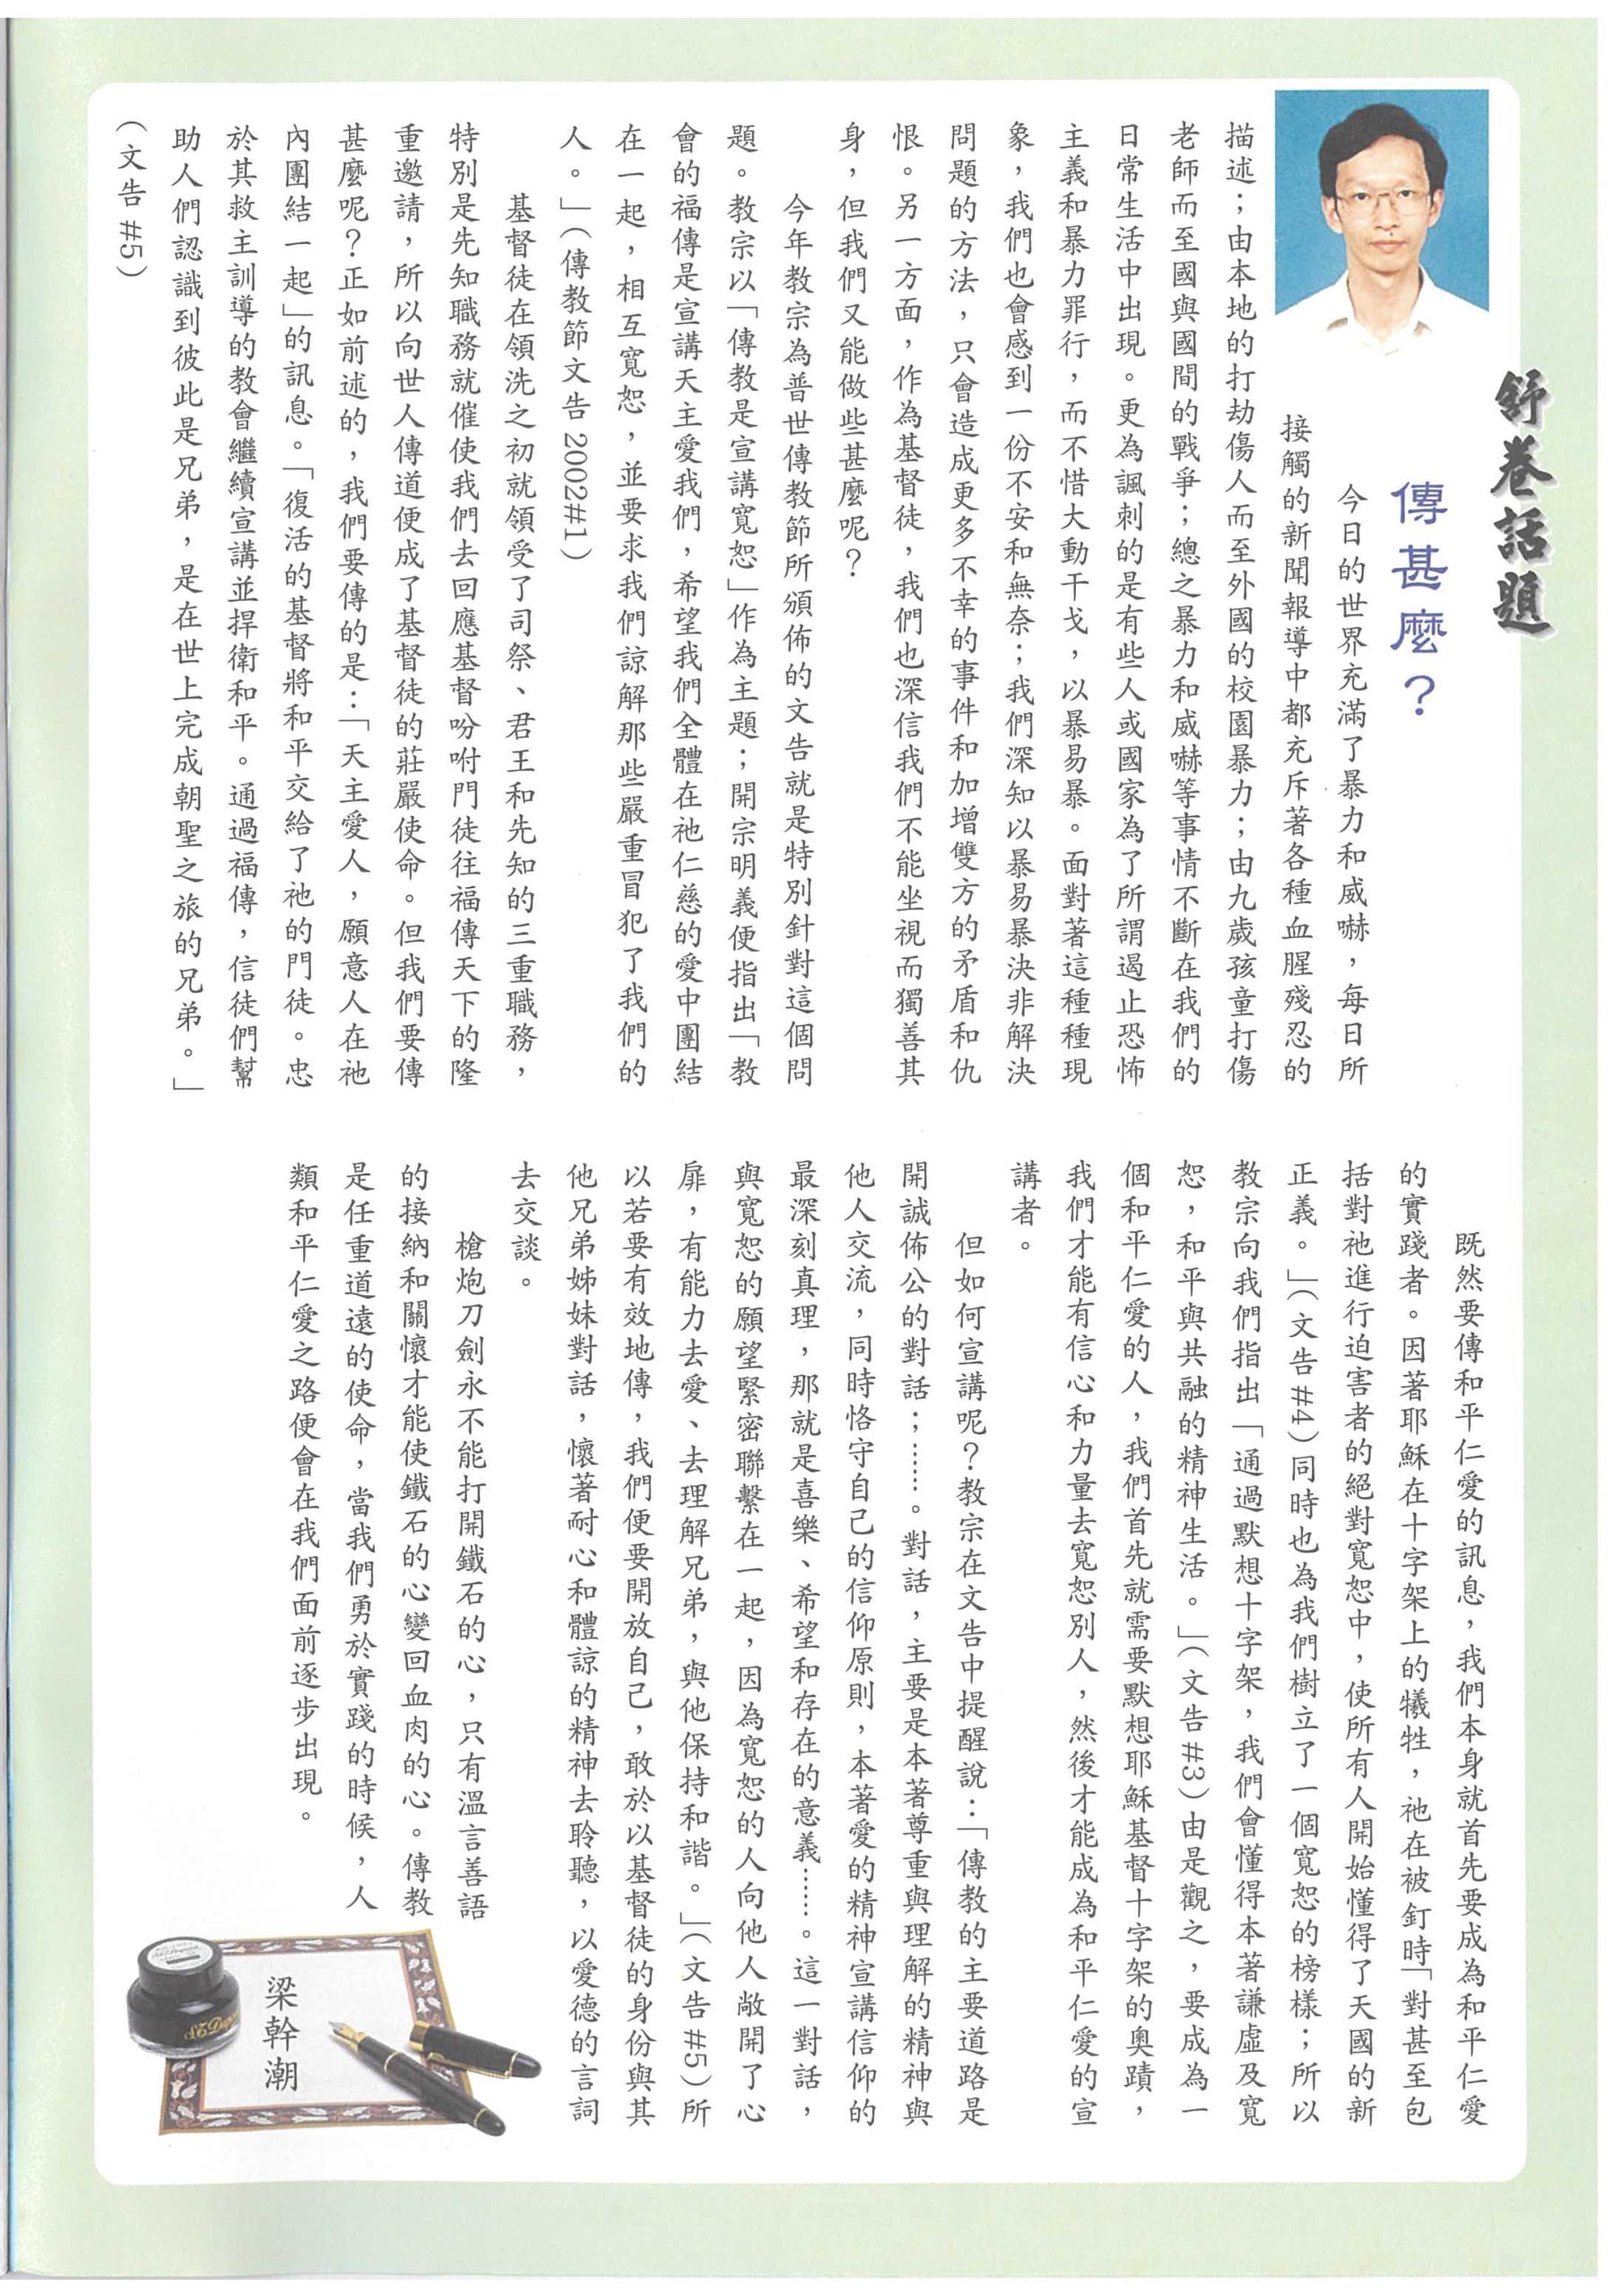 舒卷話題
傳甚麼？
今日的世界充滿了暴力和威嚇，每日所
接觸的新聞報導中都充斥著各種血腥殘忍的
描述；由本地的打劫傷人而至外國的校園暴力；由九歲孩童打傷
老師而至國與國間的戰爭；總之暴力和威嚇等事情不斷在我們的
日常生活中出現。更為諷刺的是有些人或國家為了所謂遏止恐怖
主義和暴力罪行，而不惜大動干戈，以暴易暴。面對著這種種現
象，我們也會感到一份不安和無奈；我們深知以暴易暴決非解決
問題的方法，只會造成更多不幸的事件和加增雙方的矛盾和仇
恨。另一方面，作為基督徒，我們也深信我們不能坐視而獨善其
身，但我們又能做些甚麼呢？
今年教宗為普世傳教節所頒佈的文告就是特別針對這個問
題。教宗以「傳教是宣講寬恕」作為主題；開宗明義便指出「教
會的福傳是宣講天主愛我們，希望我們全體在祂仁慈的愛中團結
在一起，相互寬恕，並要求我們諒解那些嚴重冒犯了我們的
人。」（傳教節文告 2002#1）
基督徒在領洗之初就領受了司祭、君王和先知的三重職務，
特別是先知職務就催使我們去回應基督吩咐門徒往福傳天下的隆
重邀請，所以向世人傳道便成了基督徒的莊嚴使命。但我們要傳
甚麼呢？正如前述的，我們要傳的是：「天主愛人，願意人在祂
內團結一起」的訊息。「復活的基督將和平交給了祂的門徒。忠
於其救主訓導的教會繼續宣講並捍衛和平。通過福傳，信徒們幫
助人們認識到彼此是兄弟，是在世上完成朝聖之旅的兄弟。」
（文告 #5）
既然要傳和平仁愛的訊息，我們本身就首先要成為和平仁愛
的實踐者。因著耶穌在十字架上的犧牲，祂在被釘時「對甚至包
括對祂進行迫害者的絕對寬恕中，使所有人開始懂得了天國的新
正義。」（文告 #4）同時也為我們樹立了一個寬恕的榜樣；所以
教宗向我們指出「通過默想十字架，我們會懂得本著謙虛及寬
恕，和平與共融的精神生活。」（文告 #3）由是觀之，要成為一
個和平仁愛的人，我們首先就需要默想耶穌基督十字架的奧蹟，
我們才能有信心和力量去寬恕別人，然後才能成為和平仁愛的宣
講者。
但如何宣講呢？教宗在文告中提醒說：「傳教的主要道路是
開誠佈公的對話；……。對話，主要是本著尊重與理解的精神與
他人交流，同時恪守自己的信仰原則，本著愛的精神宣講信仰的
最深刻真理，那就是喜樂、希望和存在的意義……。這一對話，
與寬恕的願望緊密聯繫在一起，因為寬恕的人向他人敞開了心
扉，有能力去愛、去理解兄弟，與他保持和諧。」（文告 #5）所
以若要有效地傳，我們便要開放自己，敢於以基督徒的身份與其
他兄弟姊妹對話，懷著耐心和體諒的精神去聆聽，以愛德的言詞
去交談。
槍炮刀劍永不能打開鐵石的心，只有溫言善語
的接納和關懷才能使鐵石的心變回血肉的心。傳教
是任重道遠的使命，當我們勇於實踐的時候，人
類和平仁愛之路便會在我們面前逐步出現。
梁幹潮